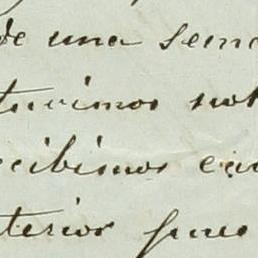 de una sema
tuvimos not
cibimos ca
terior pues